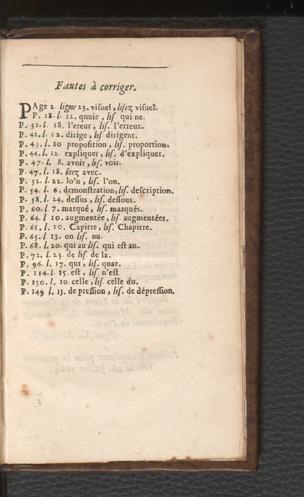 Fautes à corriger.
PAge 2. ligne 23. visnel, lisez visuel.
P. 28. l. 12. qnuie, lis. qui ne.
P. 31. l. 18. l'ereur, lis. l'erreur.
P. 41. l. 12. dirige, lis dirigent.
P. 43. l. 10 proposition, lis. proportion.
P. 44. l. 12. expliquer, lis. d'expliquer.
P. 47. l. 8. avoir, lis. voir.
P. 47. l. 18. ôtez avec.
P. 52. l. 22. lo'n, lis. l'on.
P. 54. l. 6. demonstration, lis. description.
P. 58. l. 24. dessus, lis. dessous.
P. 60. l. 7. marqué, lis. marqués.
P. 64. l. 10. augmentée, lis. augmentées.
P. 65. l. 10. Capitre, lis. Chapitre.
P. 65. l. 13. on lis. ou.
P. 68. l. 20. qui au lis. qui est au.
P. 72. l. 23. de lis. de la.
P. 96. l. 17. qur, lis. quar.
P. 114. l. 15. est, lis. n'est
P. 130. l. 10. celle, lis. celle du.
P. 149. l. 15. de pression, lis. de dépression.